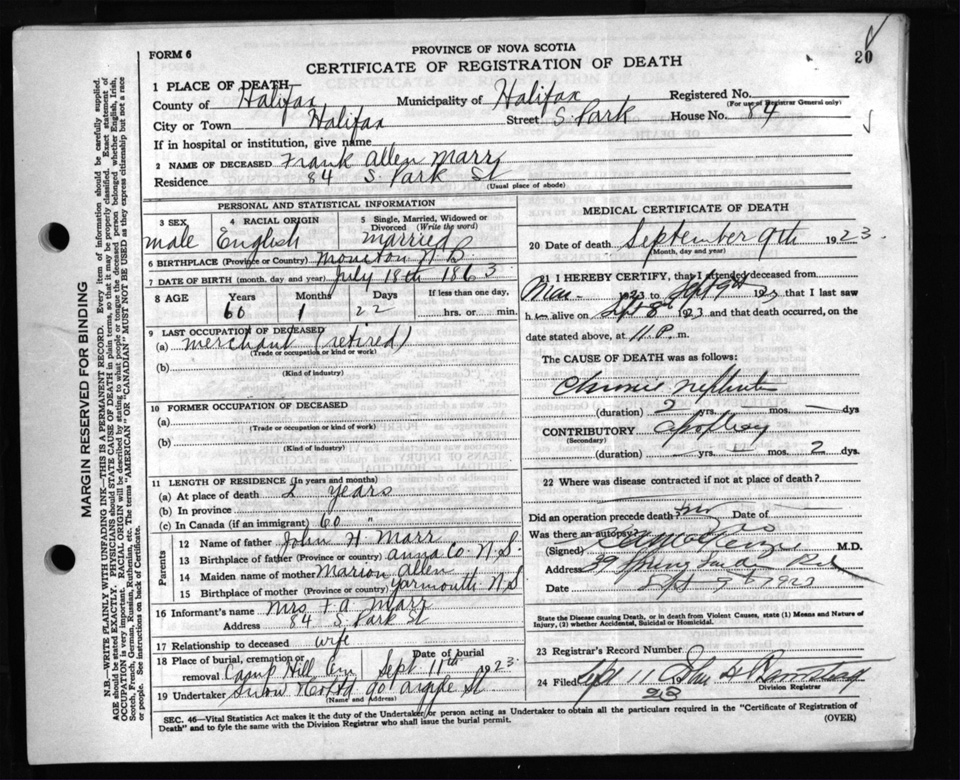 FORM 6
PROVINCE OF NOVA SCOTIA
CERTIFICATE OF REGISTRATION OF DEATH
20
1 PLACE OF DEATH
County of Halifax Municipality of Halifax Registered No.
(For use of Registrar General only)
City or Town Halifax Street S. Park House No. 84
If in hospital or institution, give name
2 NAME OF DECEASED Frank Allen Marr
Residence 84 S. Park St
(Usual place of abode)
PERSONAL AND STATISTICAL INFORMATION
3 SEX male
4 RACIAL ORIGIN English
5 Single, Married, Widowed or Divorced (Write the word) married
6 BIRTHPLACE (Province or Country) Moncton N B
7 DATE OF BIRTH (month, day and year) July 18th 1863
8 AGE Years 60 Months 1 Days 22 If less than one day, hrs. or min.
9 LAST OCCUPATION OF DECEASED
(a) merchant (retired)
(Trade or occupation or kind of work)
(b)
(Kind of industry)
10 FORMER OCCUPATION OF DECEASED
(a)
(Trade or occupation or kind of work)
(b)
(Kind of industry)
11 LENGTH OF RESIDENCE (In years and months)
(a) At place of death 2 years
(b) In province
(c) In Canada (if an immigrant) 60 "
Parents
12 Name of father John H Marr
13 Birthplace of father (Province or country) Anna Co. N.S.
14 Maiden name of mother Marion Allen
15 Birthplace of mother (Province or country) Yarmouth N S
16 Informant's name Mrs F A Marr
Address 84 S. Park St
17 Relationship to deceased wife
18 Place of burial, cremation or removal Camp Hill Cem Date of burial Sept. 11th 1923
19 Undertaker Snow 90 Argyle St
(Name and address)
MEDICAL CERTIFICATE OF DEATH
20 Date of death September 9th 1923.
(Month, day and year)
21 I HEREBY CERTIFY, that I attended deceased from
Mar. 1923 to Sept 9th 1923 that I last saw
him alive on Sept 8th 1923 and that death occurred, on the
date stated above, at 11 P. m.
The CAUSE OF DEATH was as follows:
Chronic Nephritis
(duration) 2 yrs. — mos. — dys
CONTRIBUTORY Apoplexy
(Secondary)
(duration) — yrs. — mos. 2 dys.
22 Where was disease contracted if not at place of death?
Did an operation precede death? no Date of
Was there an autopsy? no
(Signed) M.D.
Address 39 Spring Garden Rd
Date Sept 9th 1923
State the Disease causing Death, or in death from Violent Causes, state (1) Means and Nature of Injury, (2) whether Accidental, Suicidal or Homicidal.
23 Registrar's Record Number
24 Filed Sept 11
23
Division Registrar
SEC. 46—Vital Statistics Act makes it the duty of the Undertaker or person acting as Undertaker to obtain all the particulars required in the "Certificate of Registration of
Death" and to fyle the same with the Division Registrar who shall issue the burial permit.
(OVER)
MARGIN RESERVED FOR BINDING
N.B.—WRITE PLAINLY WITH UNFADING INK—THIS IS A PERMANENT RECORD. Every item of information should be carefully supplied.
AGE should be stated EXACTLY. PHYSICIANS should STATE CAUSE OF DEATH in plain terms, so that it may be properly classified. Exact statement of
OCCUPATION is very important. RACIAL ORIGIN will be described by stating to what people or tongue the deceased person belonged whether English, Irish,
Scotch, French, German, Russian, Ruthenian, etc. The terms "AMERICAN" OR "CANADIAN" MUST NOT BE USED as they express citizenship but not a race
or people. See instructions on back of Certificate.